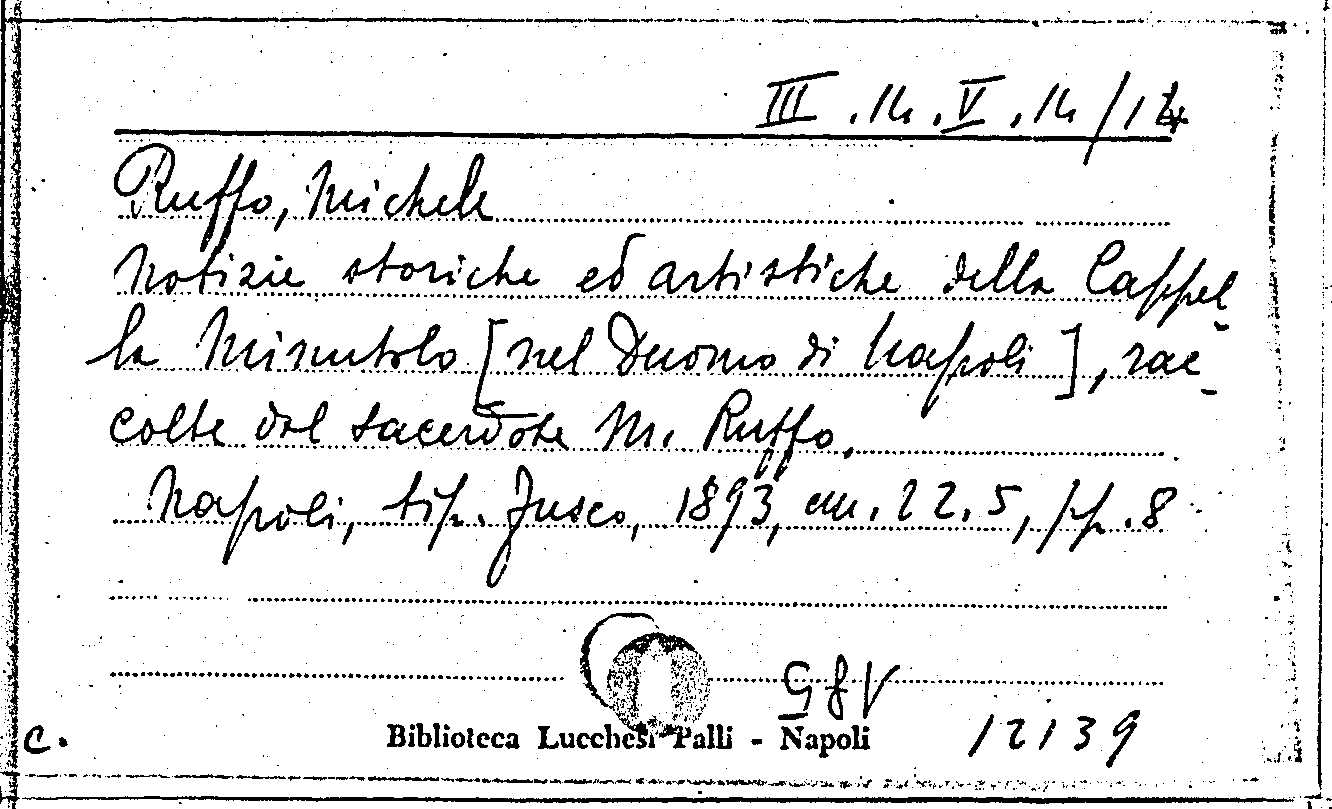 III.14.V.14/14
Ruffo, Michele
Notizie storiche ed artistiche della Cappel-
la Minutolo [nel Duomo di Napoli], rac-
colte dal sacerdote M. Ruffo.
Napoli, tip. Jusco, 1893, cm. 22.5, pp. 8
c.
Biblioteca Lucchesi Palli - Napoli
12139